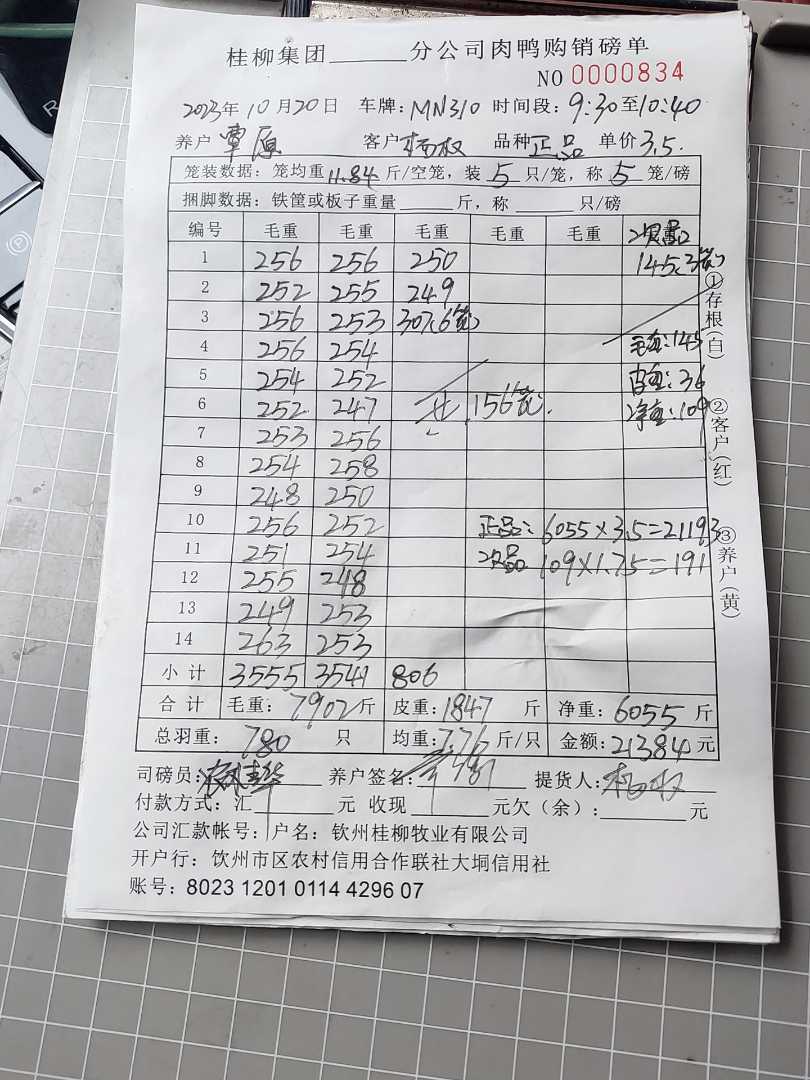 桂柳集团______分公司肉鸭购销磅单
NO 0000834
2023年10月20日 车牌:MN310 时间段:9:30至10:40
养户 覃原 客户 杨权 品种 正品 单价 3.5.
笼装数据: 笼均重11.84斤/空笼, 装 5 只/笼, 称 5 笼/磅
捆脚数据: 铁筐或板子重量______斤, 称______只/磅
编号 毛重 毛重 毛重 毛重 毛重 次品
1 256 256 250 145.3笼
2 252 255 249
3 256 253 307.(6笼)
4 256 254 毛重:145
5 254 252 皮重:36
6 252 247 共.156笼. 净重:109
7 253 256
8 254 258
9 248 250
10 256 252 正品: 6055×3.5=21193
11 251 254 次品 109×1.75=191
12 255 248
13 249 253
14 263 253
小计 3555 3541 806
合计 毛重:7902斤 皮重:1847 斤 净重:6055 斤
总羽重: 780 只 均重:7.76斤/只 金额:21384元
司磅员: 养户签名: 提货人:杨权
付款方式: 汇______元 收现______元欠(余):______元
公司汇款帐号: 户名: 钦州桂柳牧业有限公司
开户行: 饮州市区农村信用合作联社大垌信用社
账号: 8023 1201 0114 4296 07
①存根(白)
②客户(红)
③养户(黄)